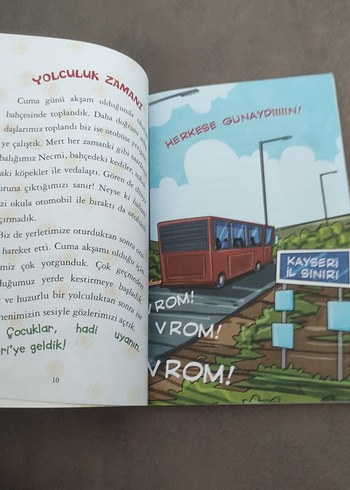 YOLCULUK ZAMANI
Cuma günü akşam olduğunda
bahçesinde toplandık. Daha doğrusu
daşlarımız toplandı biz ise otobüse
ye çalıştık. Mert her zamanki gibi
balığımız Necmi, bahçedeki kediler,
aki köpekler ile vedalaştı. Gören de
uruna çıktığımızı sanır! Neyse ki
izi okula otomobil ile bıraktı da
çırmadık.
Biz de yerlerimize oturduktan sonra
hareket etti. Cuma akşamı olduğu için
miz çok yorgunduk. Çok geçmeden
duğumuz yerde kestirmeye başladık
ve huzurlu bir yolculuktan sonra
menimizin sesiyle gözlerimizi açtık.
Çocuklar, hadi uyanın,
eri'ye geldik!
10
HERKESE GÜNAYDIIIIIN!
KAYSERİ
İL SINIRI
VROM!
VROM!
VROM!